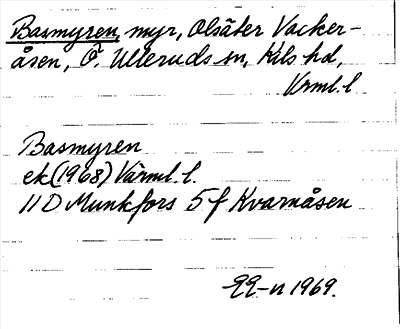 Basmyren, myr, Olsäter Vacker-
åsen, Ö. Ulleruds sn, Kils hd,
Vrml. l.
Basmyren
ek (1968) Värml. l.
11 D Munkfors 5 f Kvarnåsen
1969.